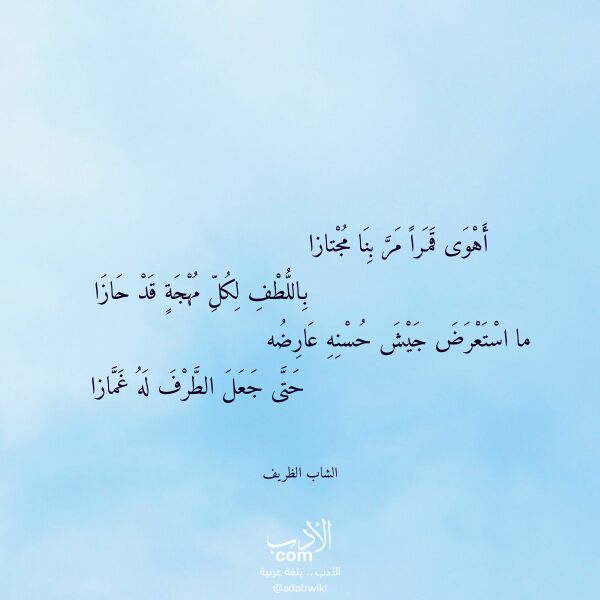 أَهْوَى قَمَراً مَرَّ بِنَا مُجْتازا
بِاللُّطْفِ لِكُلِّ مُهْجَةٍ قَدْ حَازَا
ما اسْتَعْرَضَ جَيْشَ حُسْنِهِ عَارِضُه
حَتَّى جَعَلَ الطَّرْفَ لَهُ غَمَّازا
الشاب الظريف
الأدب
com
الأدب .. بلغة عربية
@adabwiki